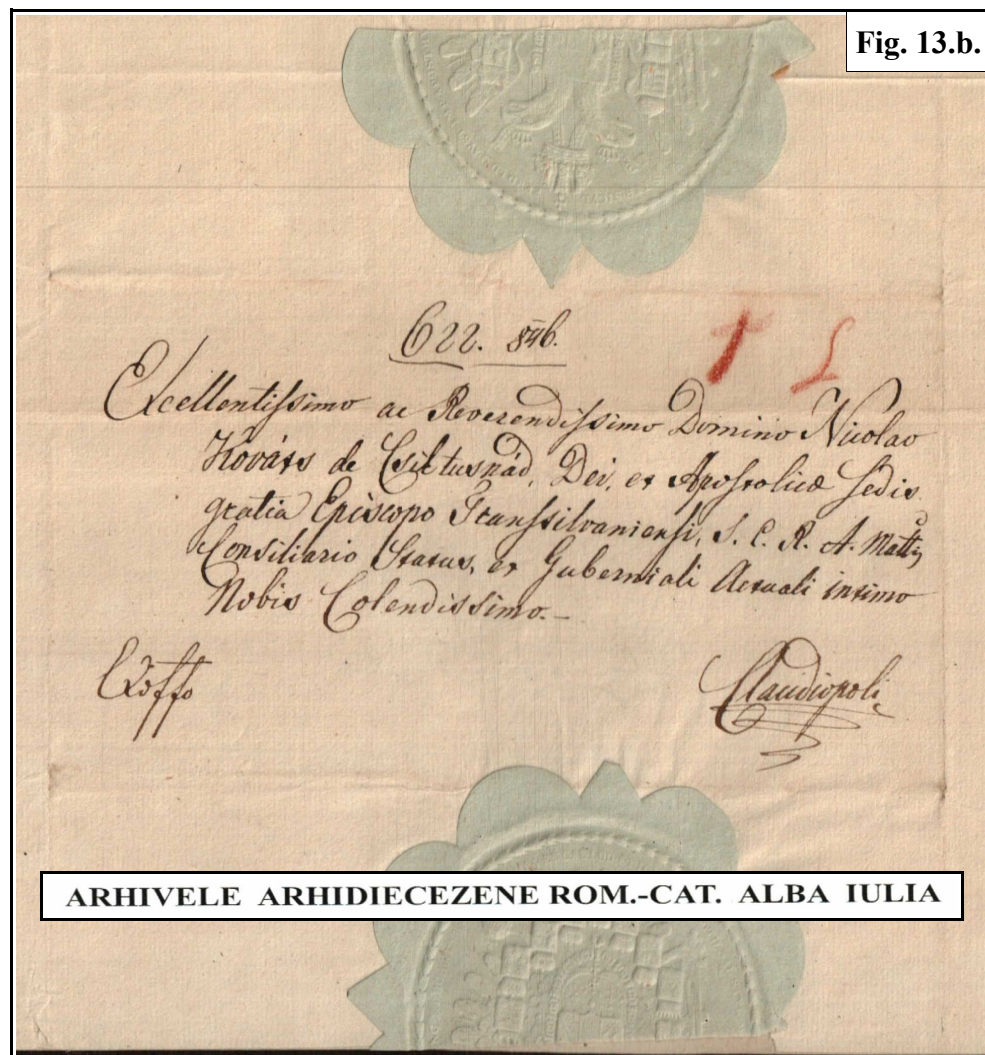 Fig. 13.b.
622. 846.
Excellentissimo ac Reverendissimo Domino Nicolao
Kováts de Csiktusnád, Dei, et Apostolicæ Sedis
gratia Episcopo Transsilvaniensi, S. C. R. A. Mattis
Consiliario Status, et Guberniali Actuali intimo
Nobis Colendissimo.-
Claudiopoli
ARHIVELE ARHIDIECEZENE ROM.-CAT. ALBA IULIA